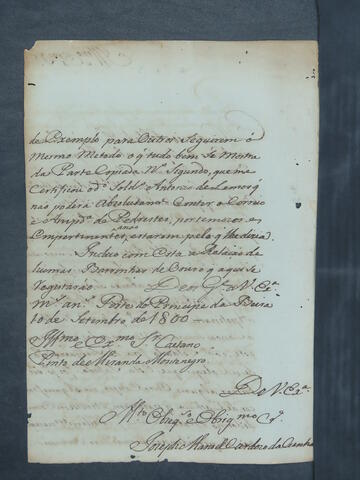 de Exemplo para Outros Seguirem o
Mesmo Metodo o q̃ tudo bem Se Mostra
da Parte Copiada Nº Segundo, que me
Certificou o dº Sold.º Antonio de Lemos q
não poderá Absolutam.te Conter, o Corsso
e Amp.do de Pedestes, por temozos e
Empertinentes, estarem pela q lhe daria).
Induzo com Esta a Relação de
humas Barrinhas de Ouro q aqui se
registarão Deos G.e a V. Ex.ª
m.s an.s Forte do Principe da Beira
10 de Setembro de 1800
Illmo e Ex.mo S.r Caetano
Pinto de Miranda Montenegro
De V. Ex.ª
M.to Obrig.º e Obrig.mo C.º
Joseph Manoel Cardozo da Cunha